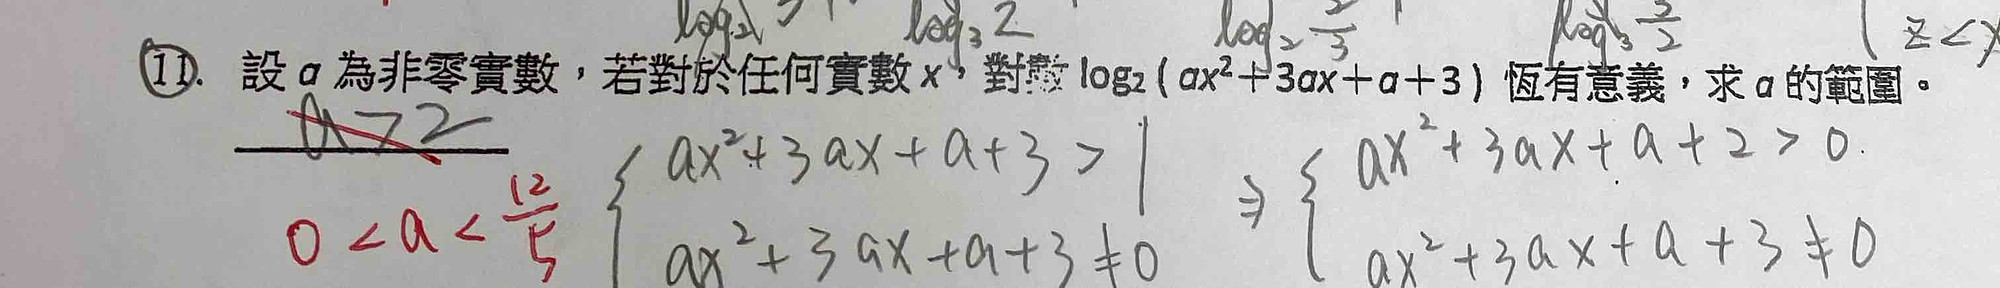 log₃2
log₂ 2/3
log₃ 3/2
z<y
11. 設 a 為非零實數，若對於任何實數 x，對數 log₂ ( ax²+3ax+a+3 ) 恆有意義，求 a 的範圍。
a>2
0 < a < 12/5
{ ax²+3ax+a+3 > 1 ⇒ { ax²+3ax+a+2 > 0.
ax²+3ax+a+3 ≠ 0 ax²+3ax+a+3 ≠ 0